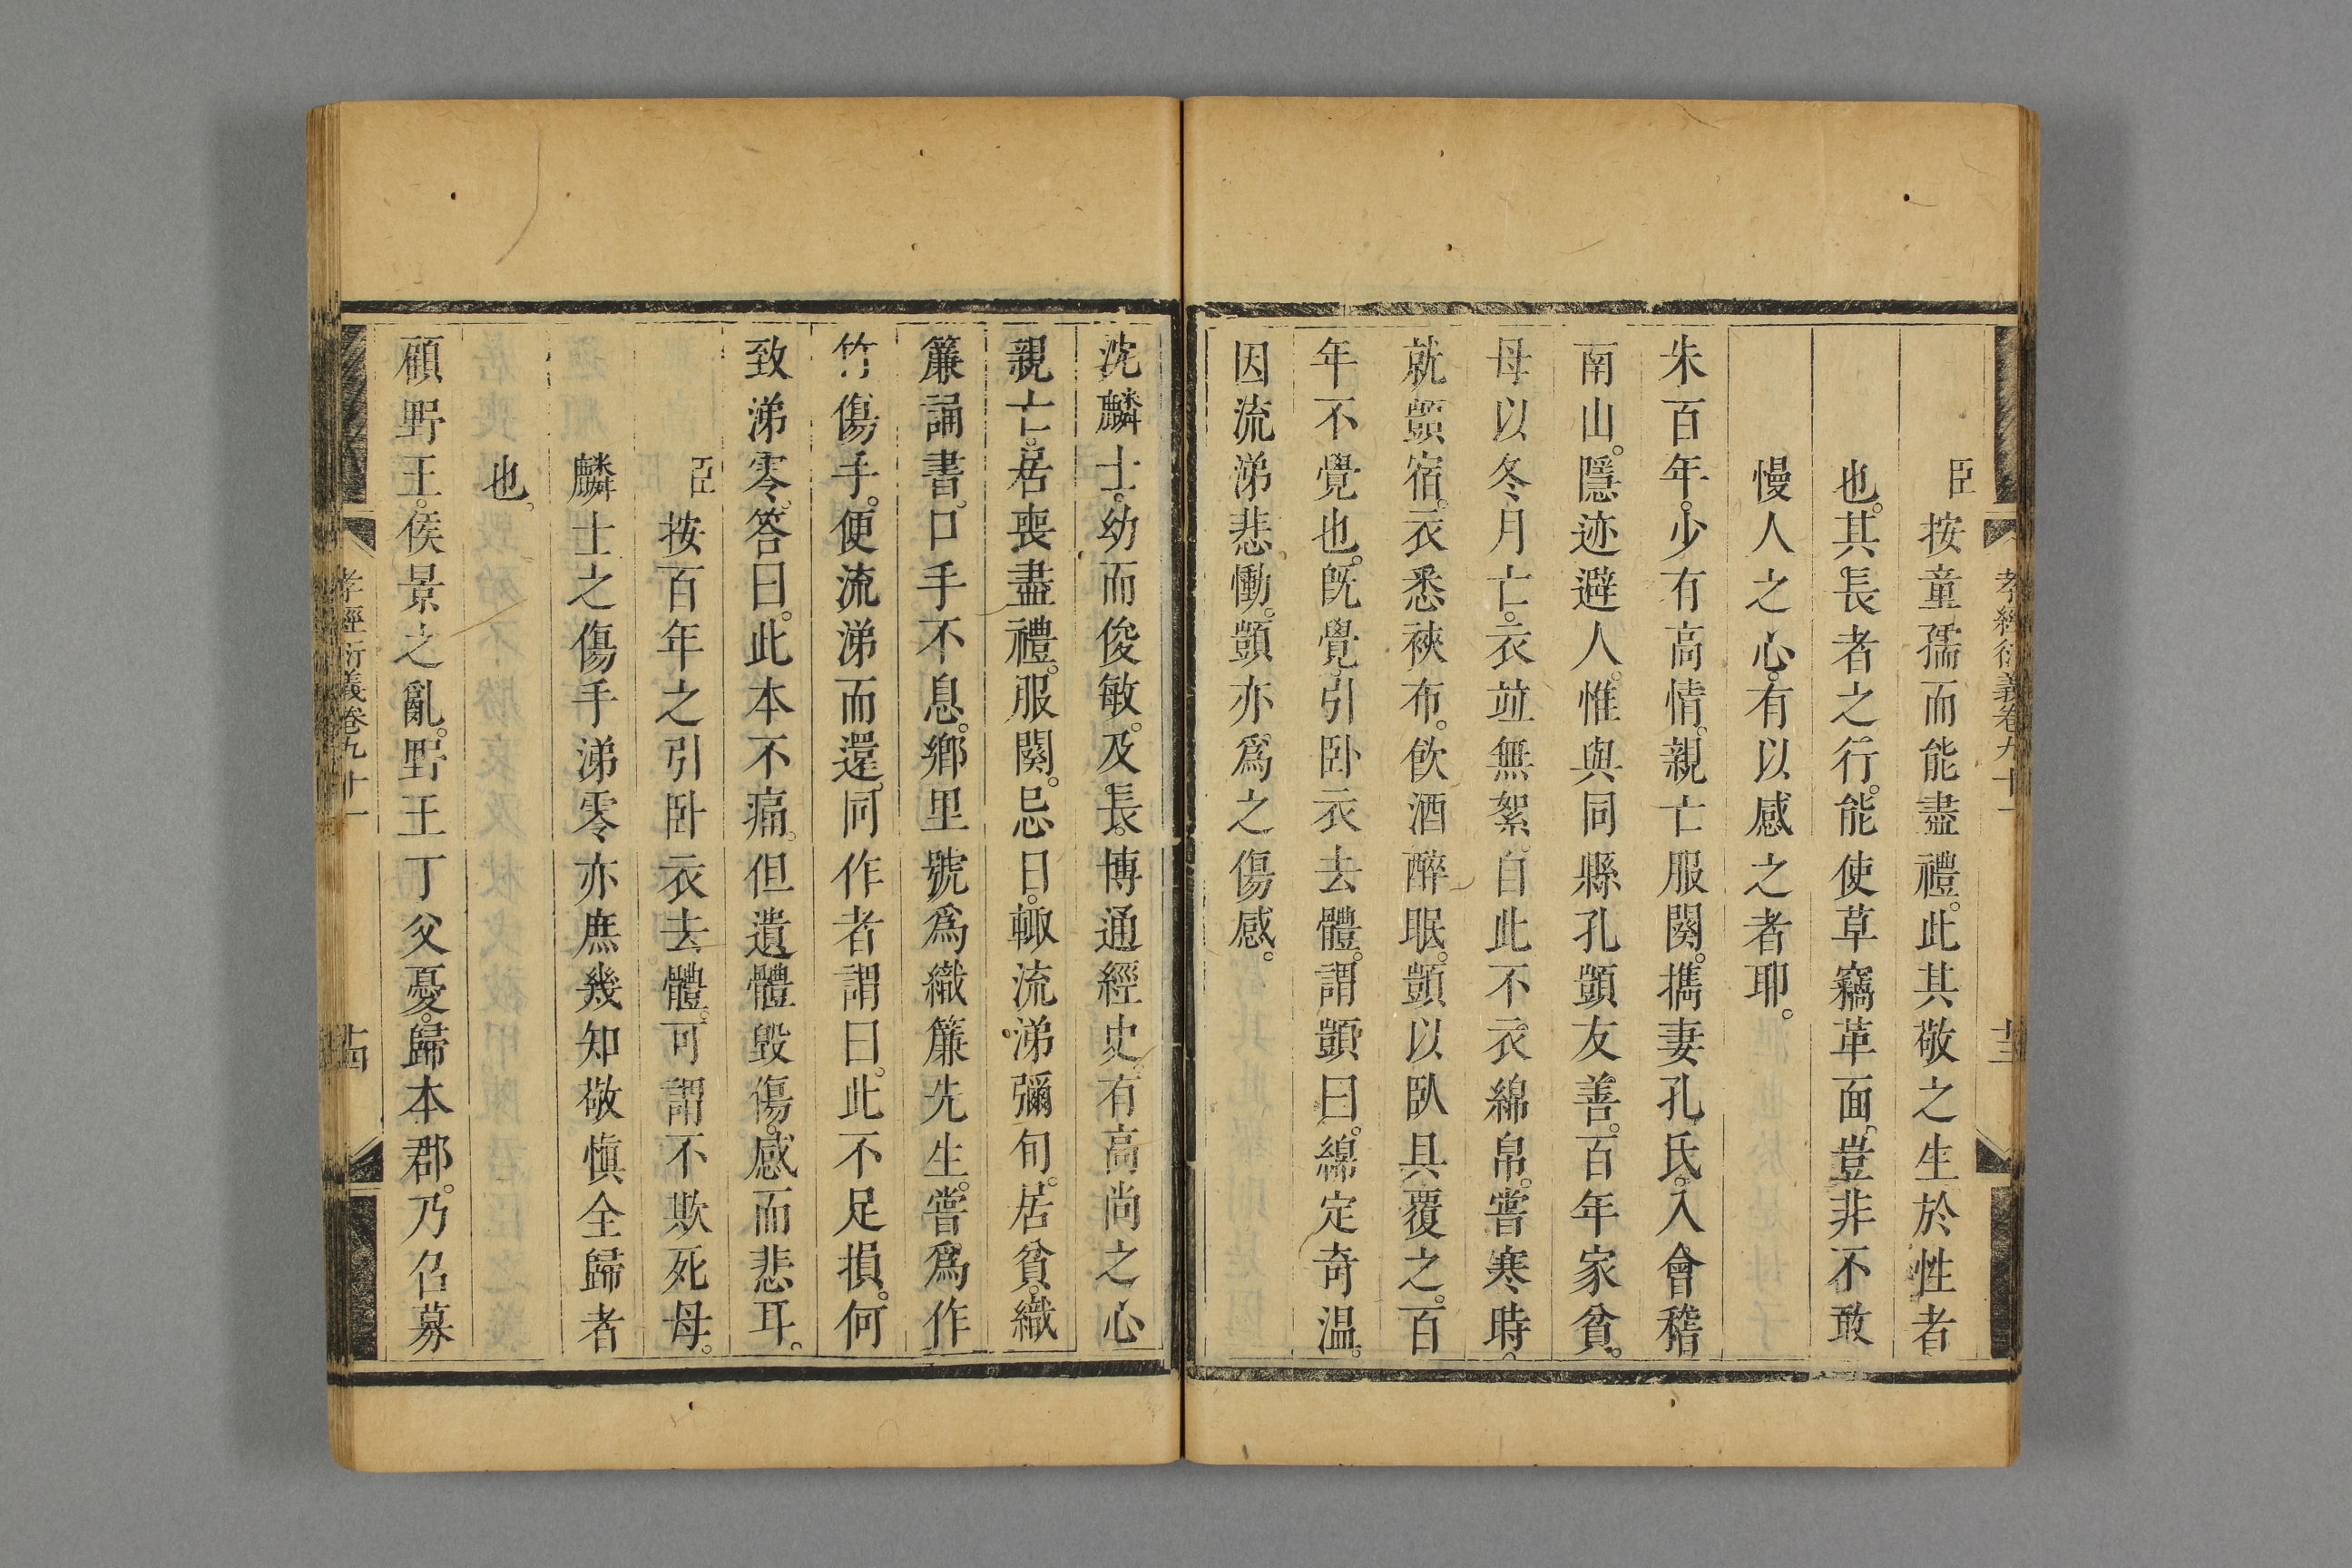 孝經衍義卷九十一
臣按童孺而能盡禮。此其敬之生於性者
也。其長者之行。能使草竊革面。豈非不敢
慢人之心。有以感之者耶。
朱百年。少有高情。親亡服闋。攜妻孔氏。入會稽
南山。隱迹避人。惟與同縣孔顗友善。百年家貧。
母以冬月亡。衣並無絮。自此不衣綿帛。嘗寒時。
就顗宿。衣悉裌布。飲酒醉眠。顗以臥具覆之。百
年不覺也。旣覺。引卧衣去體。謂顗曰。綿定奇温。
因流涕悲慟。顗亦爲之傷感。
沈麟士。幼而俊敏。及長。博通經史。有高尚之心
親亡。居喪盡禮。服闋。忌日。輙流涕彌旬。居貧。織
簾誦書。口手不息。鄉里號爲織簾先生。嘗爲作
竹傷手。便流涕而還。同作者謂曰。此不足損。何
致涕零。答曰。此本不痛。但遺體毀傷。感而悲耳。
臣按百年之引卧衣去體。可謂不欺死母。
麟士之傷手涕零亦庶幾知敬慎全歸者
也。
顧野王。侯景之亂。野王丁父憂。歸本郡。乃召募
孝經衍義卷九十一